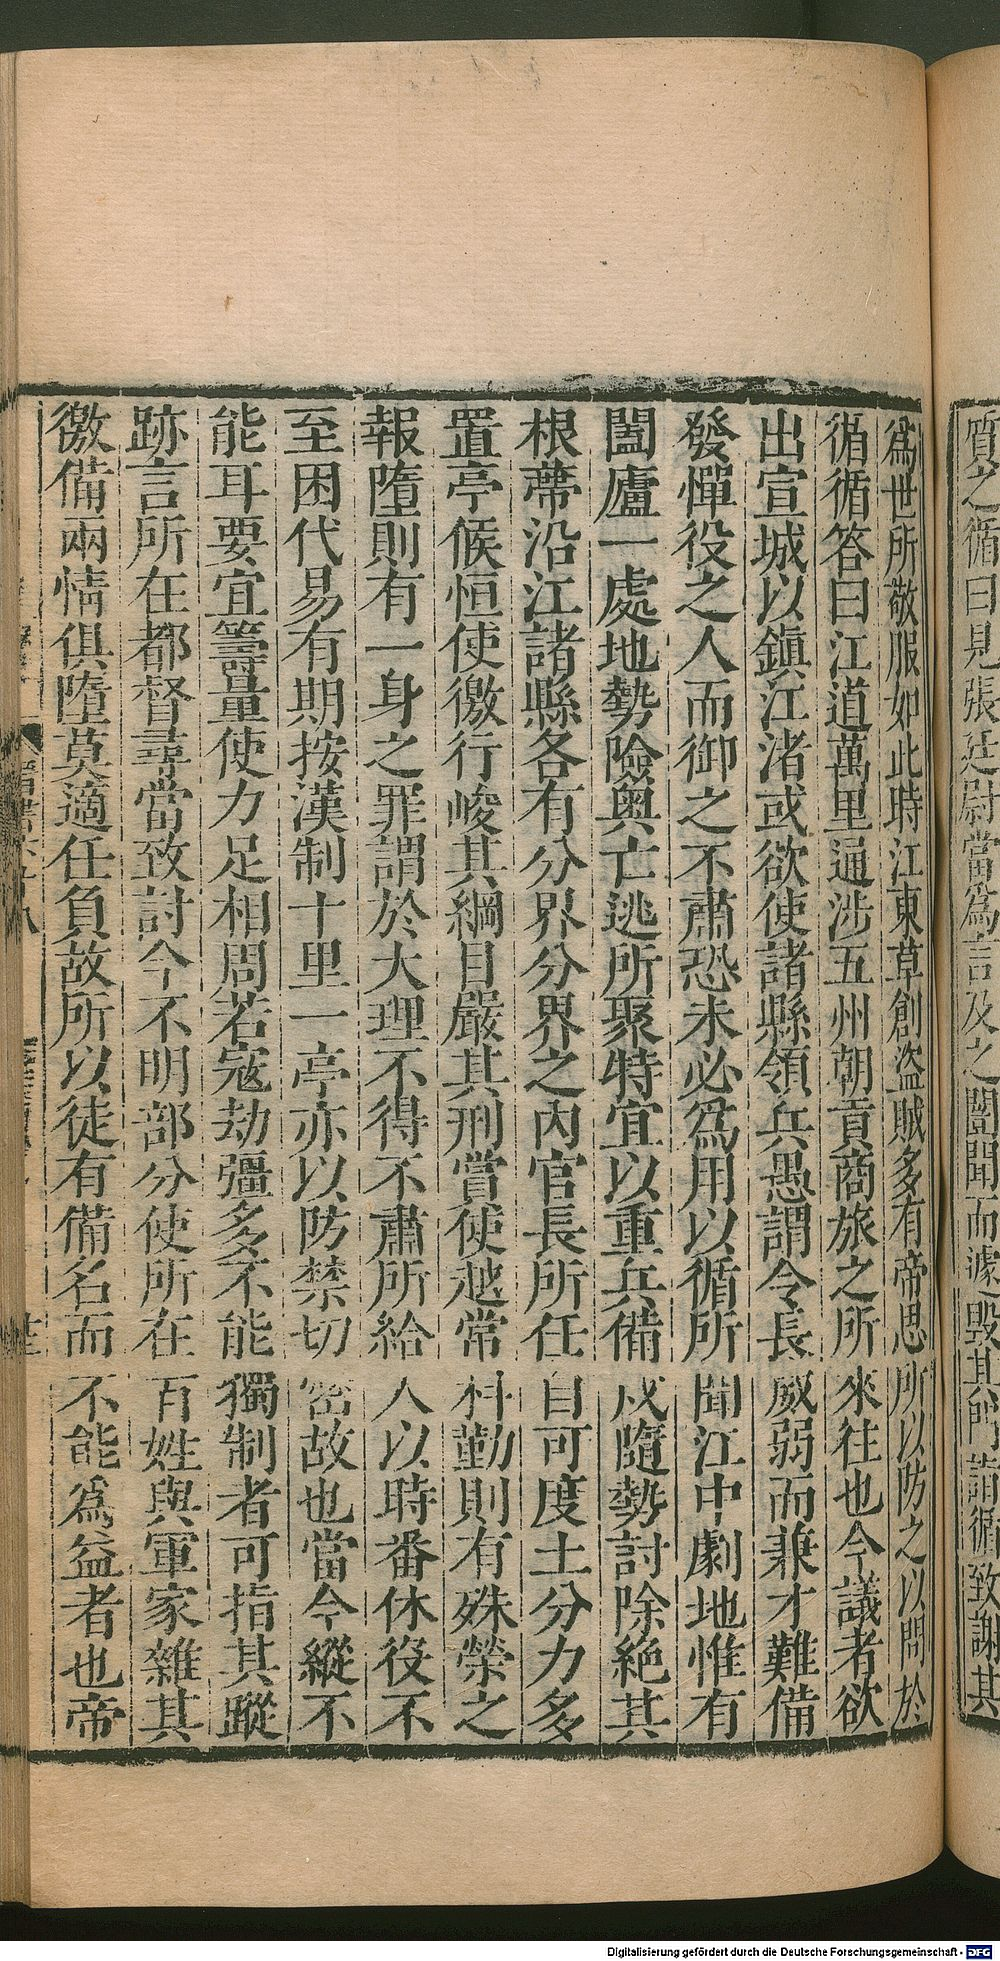 質之循曰見張廷尉當爲言及之闓聞而遽毀其門詣循致謝其
爲世所敬服如此時江東草創盜賊多有帝思所以防之以問於
循循答曰江道萬里通涉五州朝貢商旅之所來往也今議者欲
出宣城以鎮江渚或欲使諸縣領兵愚謂令長威弱而兼才難備
發憚役之人而御之不肅恐未必爲用以循所聞江中劇地惟有
闔廬一處地勢險奧亡逃所聚特宜以重兵備戍隨勢討除絕其
根蔕沿江諸縣各有分界分界之內官長所任自可度土分力多
置亭候恒使徼行峻其綱目嚴其刑賞使越常科勤則有殊榮之
報墮則有一身之罪謂於大理不得不肅所給人以時番休役不
至困代易有期按漢制十里一亭亦以防禁切密故也當今縱不
能耳要宜籌量使力足相周若寇劫彊多不能獨制者可指其蹤
跡言所在都督尋當致討今不明部分使所在百姓與軍家雜其
徼備兩情俱墮莫適任負故所以徒有備名而不能爲益者也帝
Digitalisierung gefördert durch die Deutsche Forschungsgemeinschaft - DFG